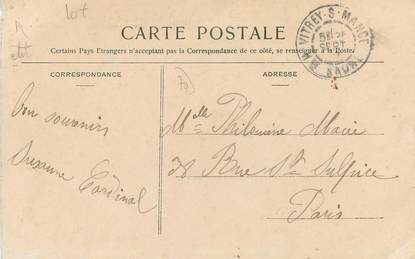 lot
CARTE POSTALE
Certains Pays Etrangers n'acceptant pas la Correspondance de ce côté, se renseigner à la Poste.
VITREY-S-MANCE
SEPT
CORRESPONDANCE
ADRESSE
70
bon souvenir
Suzanne
Cardinal
Melle Philomène Marie
38 Rue St Sulpice
Paris